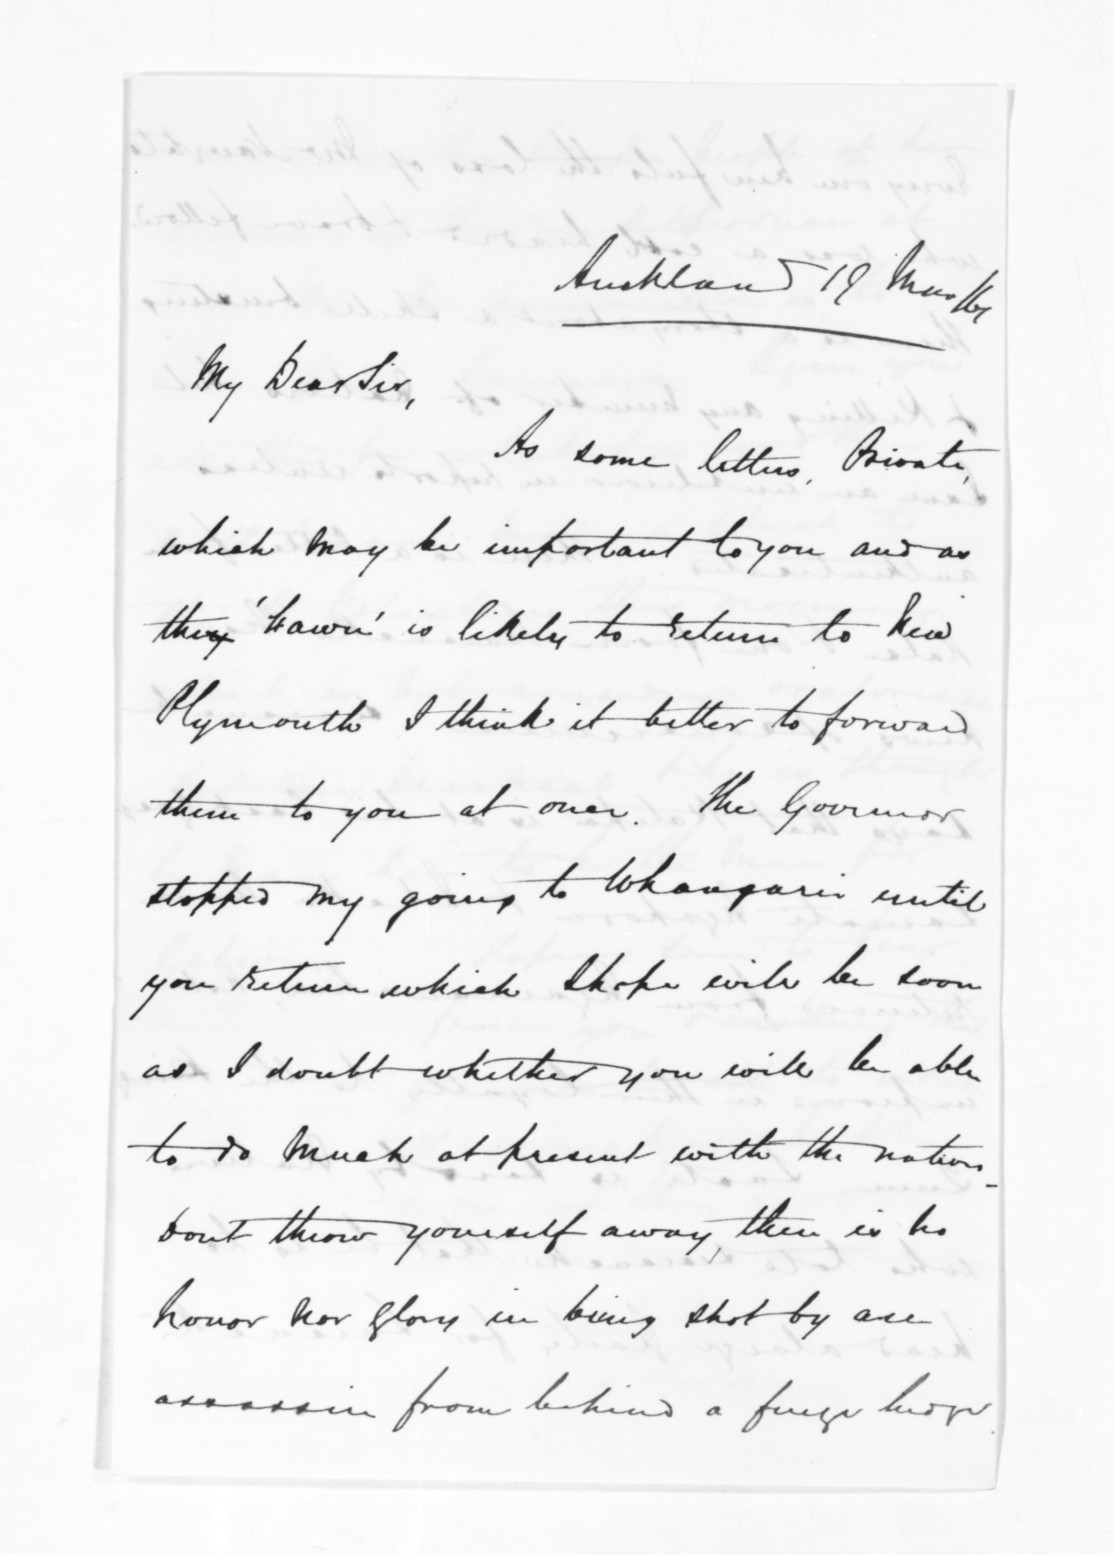 Auckland 19 Mar/61
My Dear Sir,
As some letters, Private,
which may be important to you and as
the 'Fawn' is likely to return to New
Plymouth I think it better to forward
them to you at once. The Governor
stopped my going to Whangarei until
you return which I hope will be soon
as I doubt whether you will be able
to do much at present with the natives_
Dont throw yourself away, there is no
honor nor glory in being shot by an
assassin from behind a furze hedge.